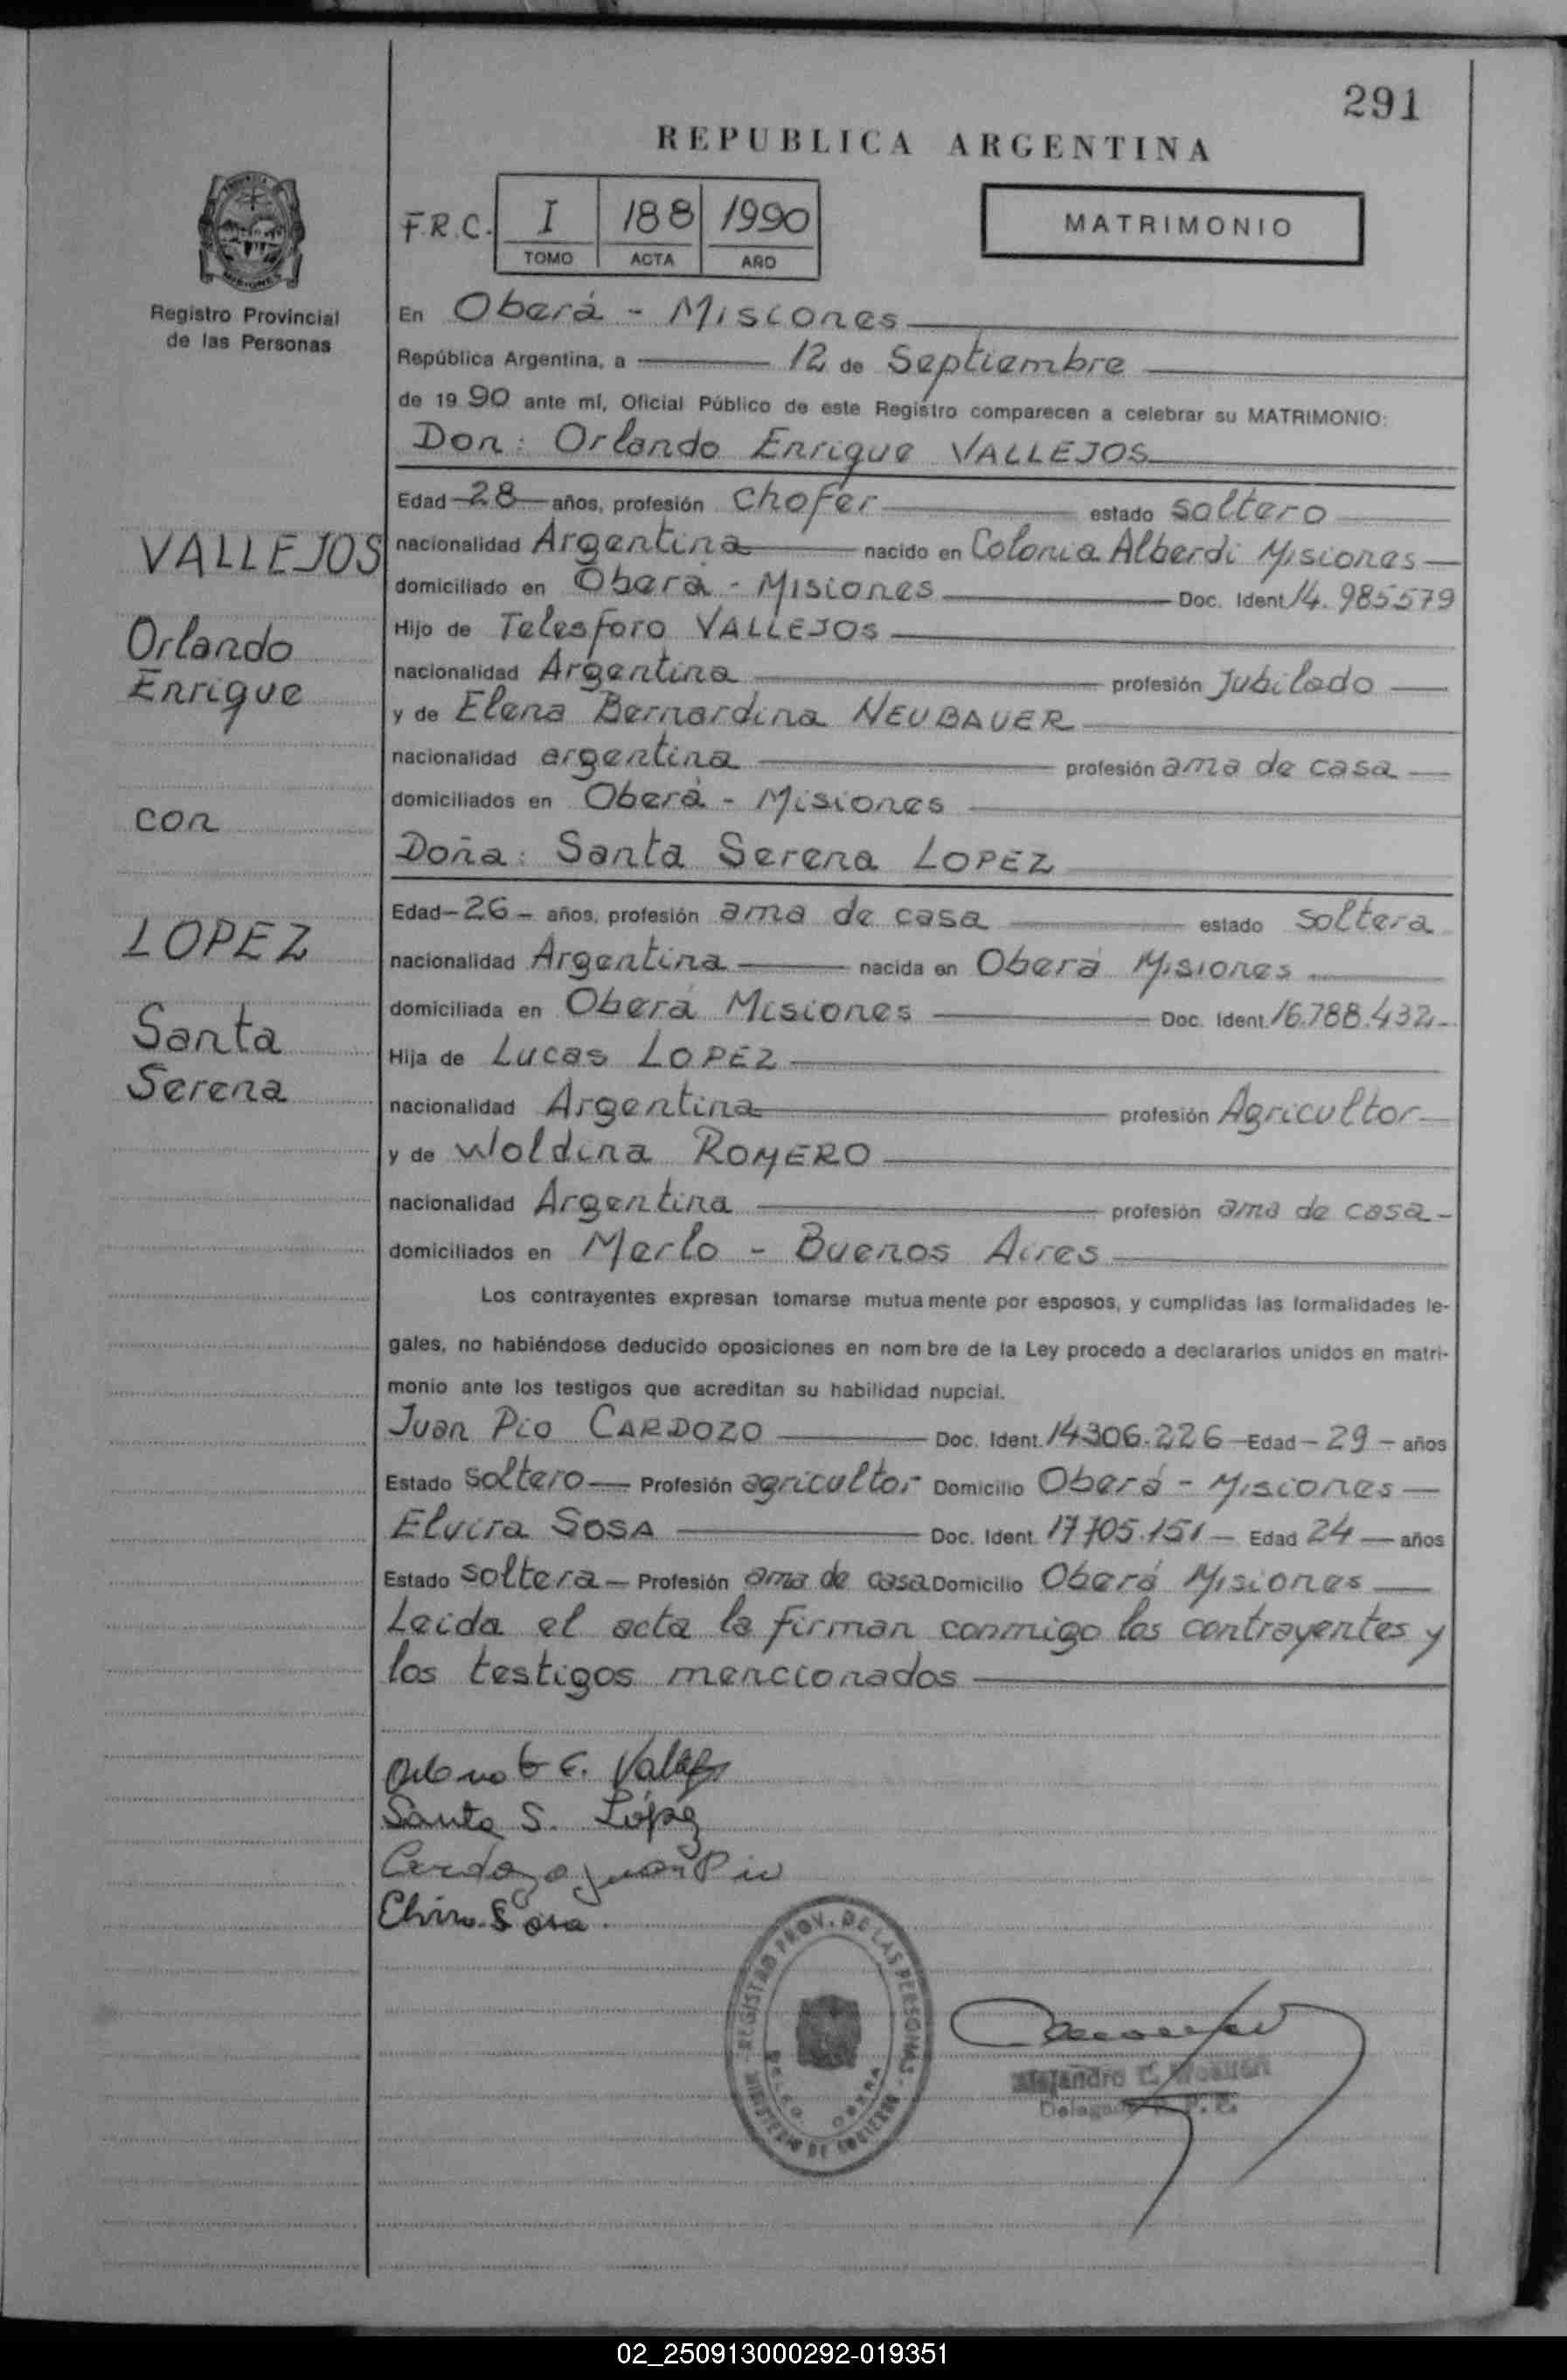 291
REPUBLICA ARGENTINA
F.R.C. I 188 1990
TOMO ACTA AÑO
MATRIMONIO
Registro Provincial
de las Personas
En Oberá - Misiones
República Argentina, a 12 de Septiembre
de 1990 ante mí, Oficial Público de este Registro comparecen a celebrar su MATRIMONIO:
Don: Orlando Enrique VALLEJOS
Edad 28 años, profesión chofer estado soltero
nacionalidad Argentina nacido en Colonia Alberdi Misiones
domiciliado en Oberá - Misiones Doc. Ident. 14.985579
Hijo de Telesforo VALLEJOS
nacionalidad Argentina profesión Jubilado
y de Elena Bernardina NEUBAUER
nacionalidad argentina profesión ama de casa
domiciliados en Oberá - Misiones
Doña: Santa Serena LOPEZ
Edad - 26 - años, profesión ama de casa estado soltera
nacionalidad Argentina nacida en Oberá Misiones
domiciliada en Oberá Misiones Doc. Ident. 16.788.432-
Hija de Lucas LOPEZ
nacionalidad Argentina profesión Agricultor
y de Woldina ROMERO
nacionalidad Argentina profesión ama de casa -
domiciliados en Merlo - Buenos Aires
Los contrayentes expresan tomarse mutuamente por esposos, y cumplidas las formalidades le-
gales, no habiéndose deducido oposiciones en nombre de la Ley procedo a declararlos unidos en matri-
monio ante los testigos que acreditan su habilidad nupcial.
Juan Pio CARDOZO Doc. Ident. 14306.226 Edad - 29 - años
Estado soltero Profesión agricultor Domicilio Oberá - Misiones
Elvira SOSA Doc. Ident. 17705.151 Edad 24 años
Estado soltera Profesión ama de casa Domicilio Oberá Misiones
Leida el acta la firman conmigo los contrayentes y
los testigos mencionados
VALLEJOS
Orlando
Enrique
con
LOPEZ
Santa
Serena
Orlando E. Vallejos
Santa S. López
Cardozo Juan Pio
Elvira Sosa
REGISTRO PROV. DE LAS PERSONAS
MINISTERIO DE GOBIERNO
DELEG. OBERA
Alejandro C.
Delegado R. P. P.
02_250913000292-019351